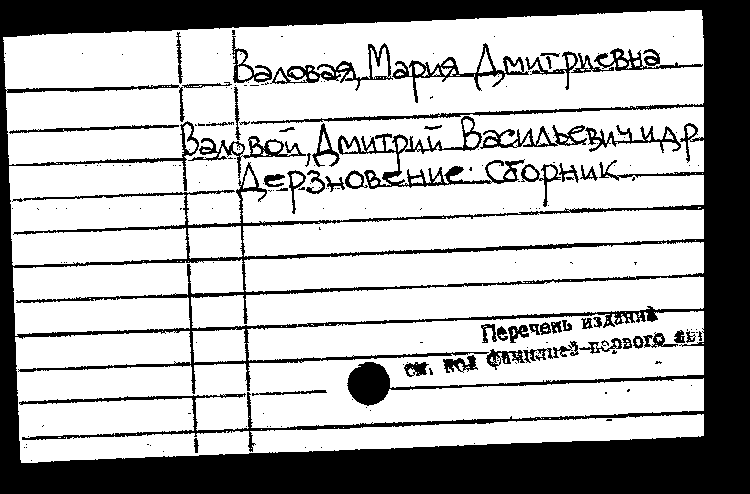 Валовая, Мария Дмитриевна.
Валовой, Дмитрий Васильевич и др.
Дерзновение: Сборник.
Перечень изданий
см. под фамилией первого авт